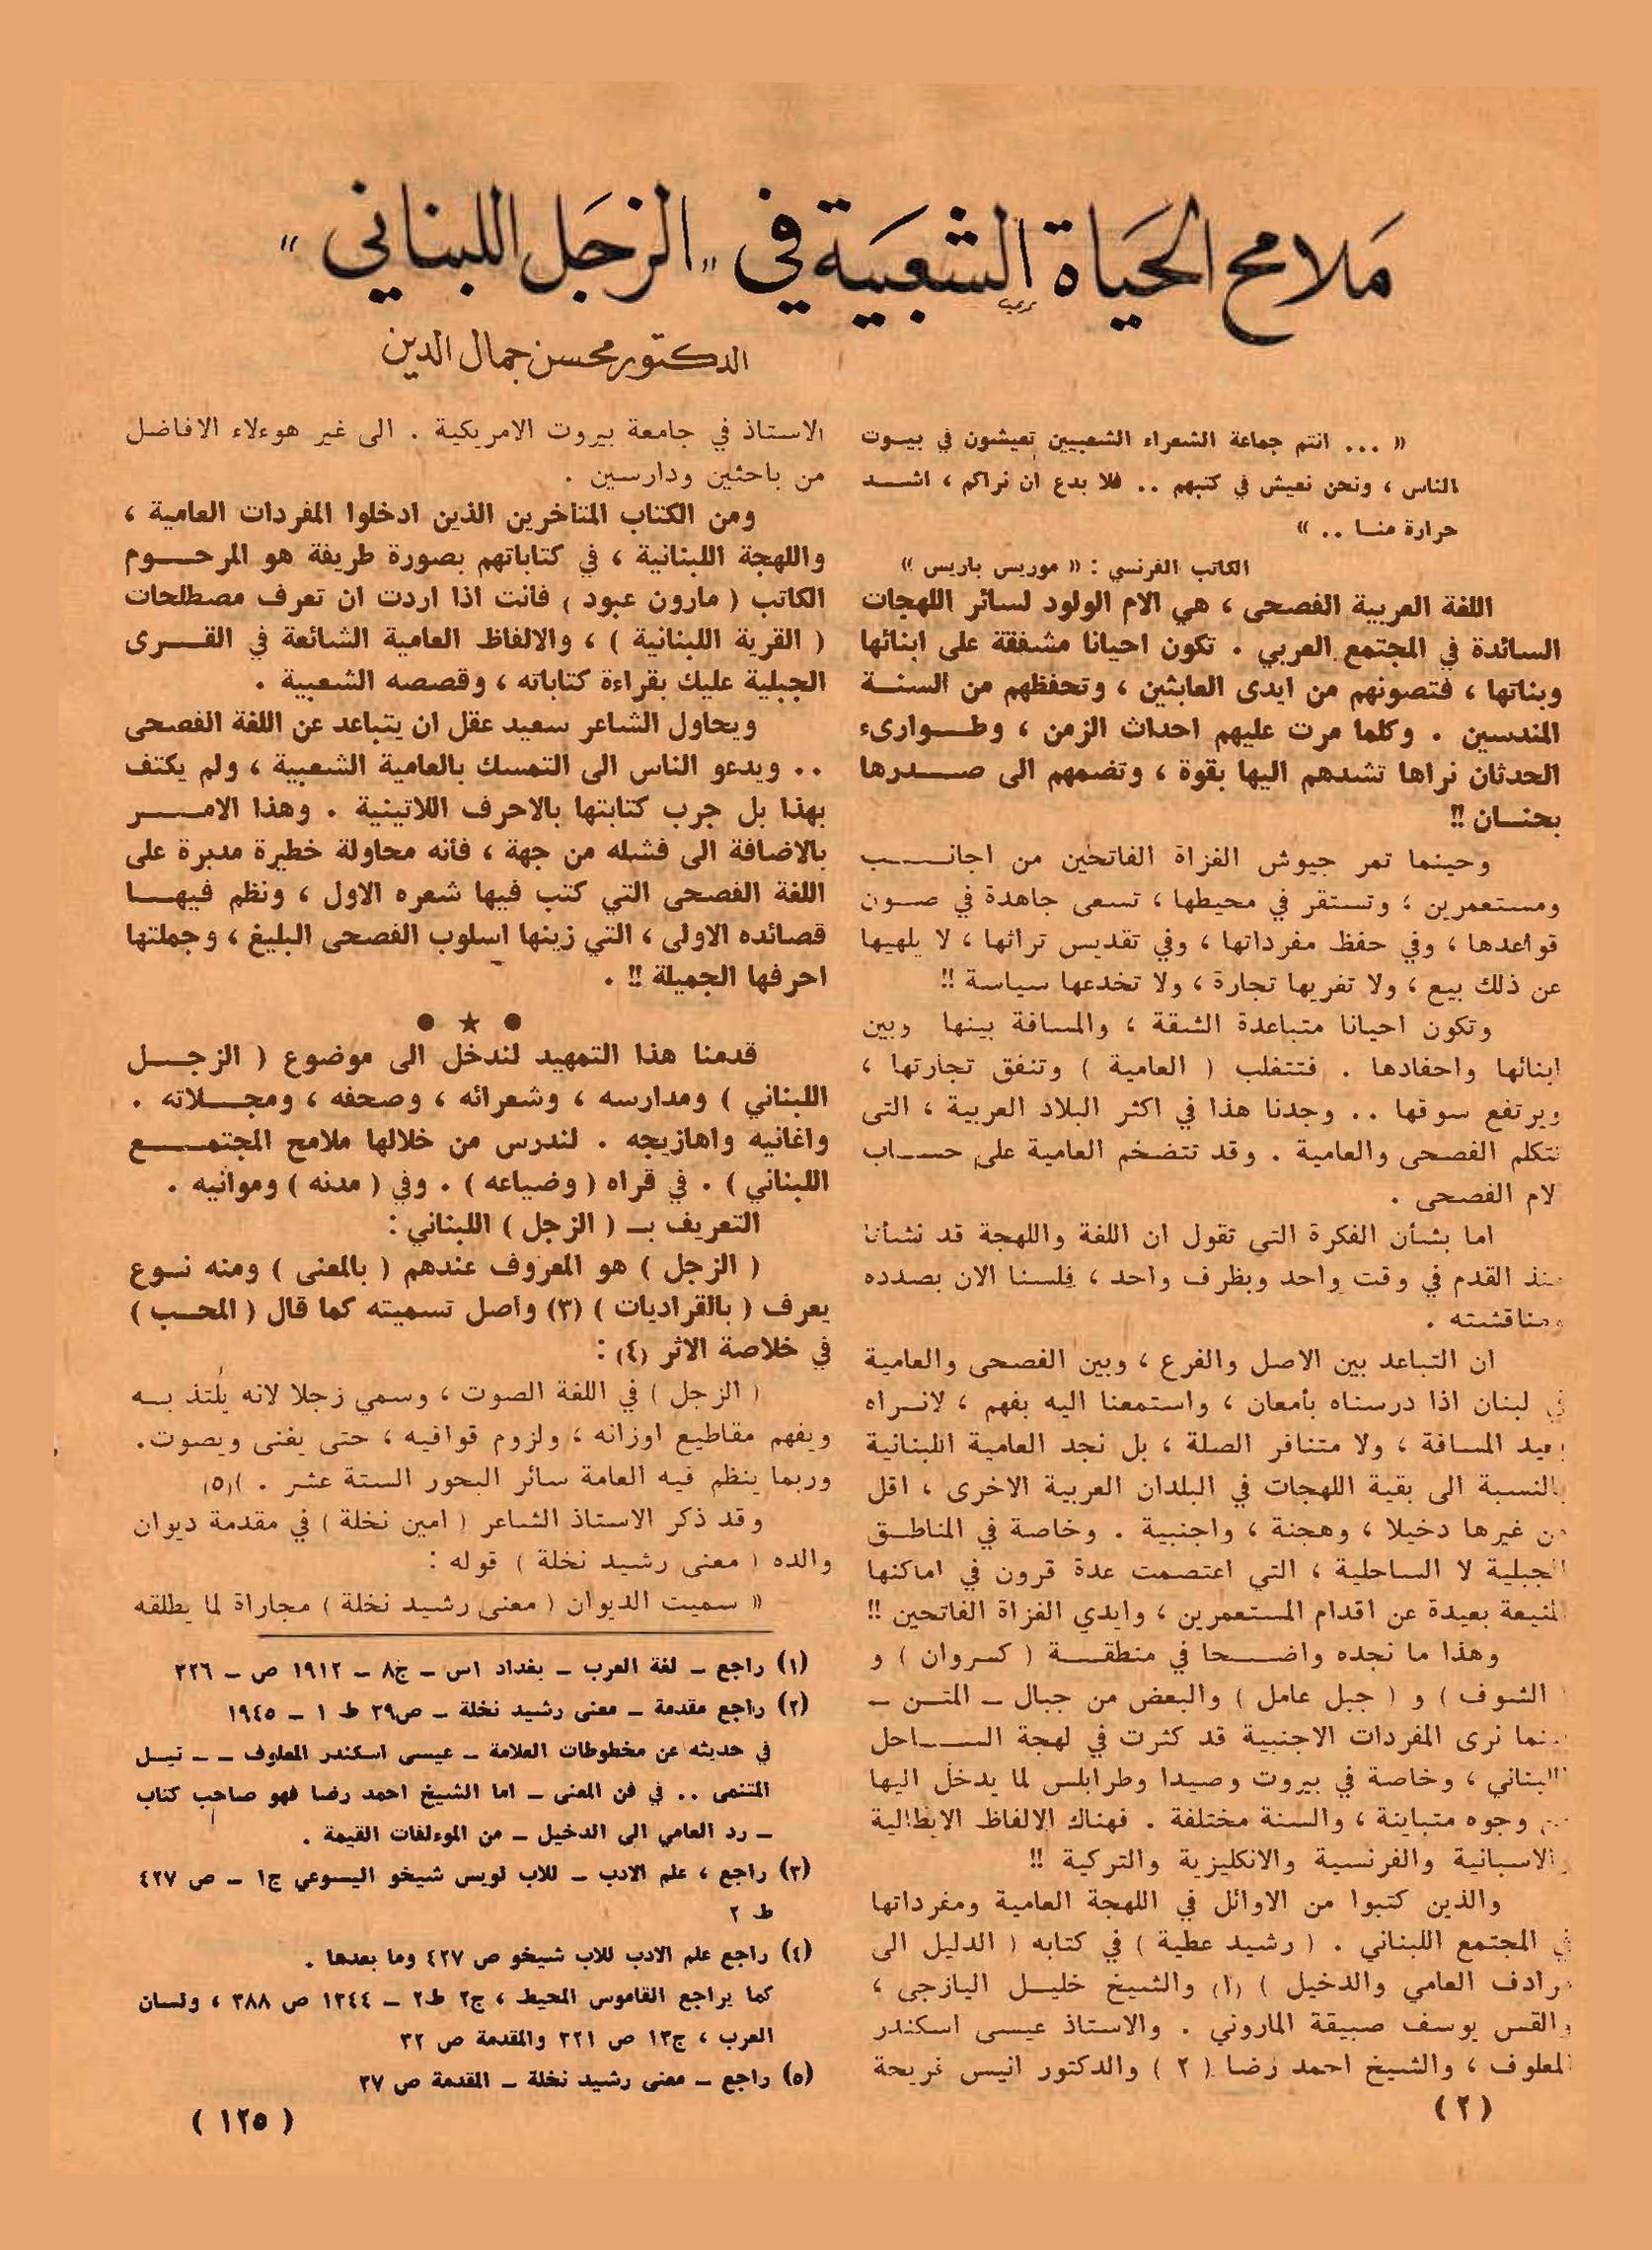 ملامح الحياة الشعبية في "الزجل اللبناني"
الدكتور محسن جمال الدين
« ... انتم جماعة الشعراء الشعبيين تعيشون في بيوت
الناس ، ونحن نعيش في كتبهم .. فلا بدع ان نراكم ، اشد
حرارة منا .. »
الكاتب الفرنسي : « موريس باريس »
اللغة العربية الفصحى ، هي الام الولود لسائر اللهجات
السائدة في المجتمع العربي . تكون احيانا مشفقة على ابنائها
وبناتها ، فتصونهم من ايدى العابثين ، وتحفظهم من السنة
المندسين . وكلما مرت عليهم احداث الزمن ، وطوارىء
الحدثان نراها تشدهم اليها بقوة ، وتضمهم الى صدرها
بحنان !!
وحينما تمر جيوش الغزاة الفاتحين من اجانب
ومستعمرين ؛ وتستقر في محيطها ، تسعى جاهدة في صون
قواعدها ، وفي حفظ مفرداتها ، وفي تقديس تراثها ، لا يلهيها
عن ذلك بيع ، ولا تغريها تجارة ، ولا تخدعها سياسة !!
وتكون احيانا متباعدة الشقة ، والمسافة بينها وبين
ابنائها واحفادها . فتتغلب ( العامية ) وتنفق تجارتها ،
ويرتفع سوقها .. وجدنا هذا في اكثر البلاد العربية ، التى
تتكلم الفصحى والعامية . وقد تتضخم العامية على حساب
لام الفصحى .
اما بشأن الفكرة التي تقول ان اللغة واللهجة قد نشأتا
منذ القدم في وقت واحد وبظرف واحد ، فلسنا الان بصدده
ومناقشته .
ان التباعد بين الاصل والفرع ، وبين الفصحى والعامية
في لبنان اذا درسناه بأمعان ، واستمعنا اليه بفهم ، لانراه
بعيد المسافة ، ولا متنافر الصلة ، بل نجد العامية اللبنانية
بالنسبة الى بقية اللهجات في البلدان العربية الاخرى ، اقل
من غيرها دخيلا ، وهجنة ، واجنبية . وخاصة في المناطق
الجبلية لا الساحلية ، التي اعتصمت عدة قرون في اماكنها
المنيعة بعيدة عن اقدام المستعمرين ، وايدي الغزاة الفاتحين !!
وهذا ما نجده واضحا في منطقة ( كسروان ) و
( الشوف ) و ( جبل عامل ) والبعض من جبال ـ المتن ـ
بينما نرى المفردات الاجنبية قد كثرت في لهجة الساحل
اللبناني ، وخاصة في بيروت وصيدا وطرابلس لما يدخل اليها
من وجوه متباينة ، والسنة مختلفة . فهناك الالفاظ الايطالية
والاسبانية والفرنسية والانكليزية والتركية !!
والذين كتبوا من الاوائل في اللهجة العامية ومفرداتها
في المجتمع اللبناني . ( رشيد عطية ) في كتابه ( الدليل الى
مرادف العامي والدخيل ) (١) والشيخ خليل اليازجى ،
والقس يوسف صبيقة الماروني . والاستاذ عيسى اسكندر
المعلوف ، والشيخ احمد رضا ( ٢ ) والدكتور انيس فريحة
( ٢ )
الاستاذ في جامعة بيروت الامريكية . الى غير هوءلاء الافاضل
من باحثين ودارسين .
ومن الكتاب المتاخرين الذين ادخلوا المفردات العامية ،
واللهجة اللبنانية ، في كتاباتهم بصورة طريفة هو المرحوم
الكاتب ( مارون عبود ) فانت اذا اردت ان تعرف مصطلحات
( القرية اللبنانية ) ، والالفاظ العامية الشائعة في القرى
الجبلية عليك بقراءة كتاباته ، وقصصه الشعبية .
ويحاول الشاعر سعيد عقل ان يتباعد عن اللغة الفصحى
.. ويدعو الناس الى التمسك بالعامية الشعبية ، ولم يكتف
بهذا بل جرب كتابتها بالاحرف اللاتينية . وهذا الامر
بالاضافة الى فشله من جهة ، فأنه محاولة خطيرة مدبرة على
اللغة الفصحى التي كتب فيها شعره الاول ، ونظم فيها
قصائده الاولى ، التي زينها اسلوب الفصحى البليغ ، وجملتها
احرفها الجميلة !! .
● ★ ●
قدمنا هذا التمهيد لندخل الى موضوع ( الزجل
اللبناني ) ومدارسه ، وشعرائه ، وصحفه ، ومجلاته .
واغانيه واهازيجه . لندرس من خلالها ملامح المجتمع
اللبناني ) . في قراه ( وضياعه ) . وفي ( مدنه ) وموانيه .
التعريف بـ ( الزجل ) اللبناني :
( الزجل ) هو المعروف عندهم ( بالمعنى ) ومنه نوع
يعرف ( بالقراديات ) (٣) واصل تسميته كما قال ( المحب )
في خلاصة الاثر (٤) :
( الزجل ) في اللغة الصوت ، وسمي زجلا لانه يُلتذ به
ويفهم مقاطيع اوزانه ، ولزوم قوافيه ، حتى يغنى ويصوت.
وربما ينظم فيه العامة سائر البحور الستة عشر . )(٥)
وقد ذكر الاستاذ الشاعر ( امين نخلة ) في مقدمة ديوان
والده ( معنى رشيد نخلة ) قوله :
« سميت الديوان ( معنى رشيد نخلة ) مجاراة لما يطلقه
(١) راجع ـ لغة العرب ـ بغداد ١س ـ ج٨ ـ ١٩١٢ ص ـ ٣٢٦
(٢) راجع مقدمة ـ معنى رشيد نخلة ـ ص٣٩ ط ١ ـ ١٩٤٥
في حديثه عن مخطوطات العلامة ـ عيسى اسكندر المعلوف ـ ـ نيل
المتنمى .. في فن المعنى ـ اما الشيخ احمد رضا فهو صاحب كتاب
ـ رد العامي الى الدخيل ـ من الموءلفات القيمة .
(٣) راجع ، علم الادب ـ للاب لويس شيخو اليسوعي ج١ ـ ص ٤٢٧
ط ٢
(٤) راجع علم الادب للاب شيخو ص ٤٢٧ وما بعدها .
كما يراجع القاموس المحيط ، ج٣ ط٢ ـ ١٣٤٤ ص ٣٨٨ ، ولسان
العرب ، ج١٣ ص ٣٢١ والمقدمة ص ٣٢
(٥) راجع ـ معنى رشيد نخلة ـ المقدمة ص ٣٧
( ١٢٥ )